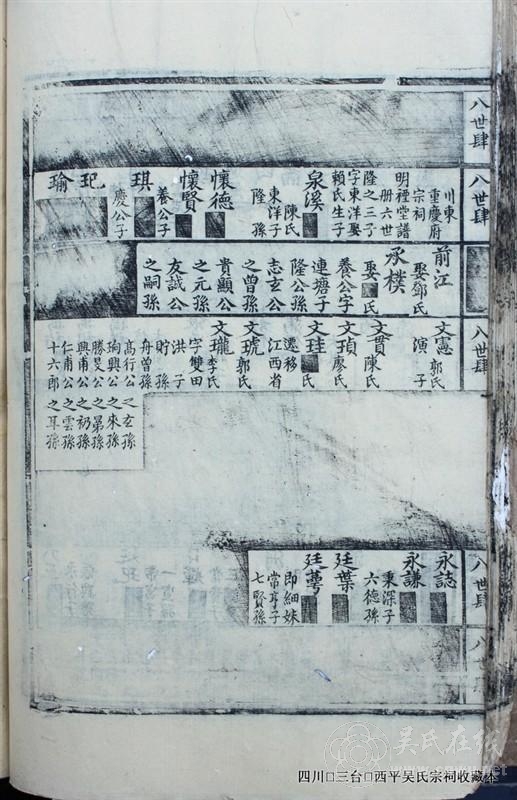 八世肆
八世肆
川東
重慶府
宗祠
明禋堂譜
册六世
隆之三子
字東洋娶
賴氏生子
泉溪
陳氏
東洋子
隆孫
懷德
懷賢
養公子
琪
慶公子
玘
瑜
前江
娶鄧氏
承樸
娶氏
養公字
連塘子
隆公孫
志玄公
之曾孫
貴顯公
之元孫
友誠公
之嗣孫
八世肆
文憲郭氏
演子
文貫陳氏
文瑱廖氏
文珪氏
遷移
江西省
文琥郭氏
字雙田
文瓏李氏
洪子
貯孫
舟曾孫
高行公之玄孫
珣興公之來孫
勝旻公之晜孫
興甫公之礽孫
仁甫公之雲孫
十六郎之耳孫
八世肆
永誌
永謙
秉深子
六德孫
廷葉
廷萼
即細妹
常亨子
七賢孫
八世
吴氏在线
四川□三台□西平吴氏宗祠收藏本